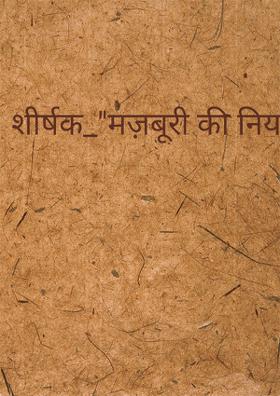 शीर्षक_"मज़बूरी की निय